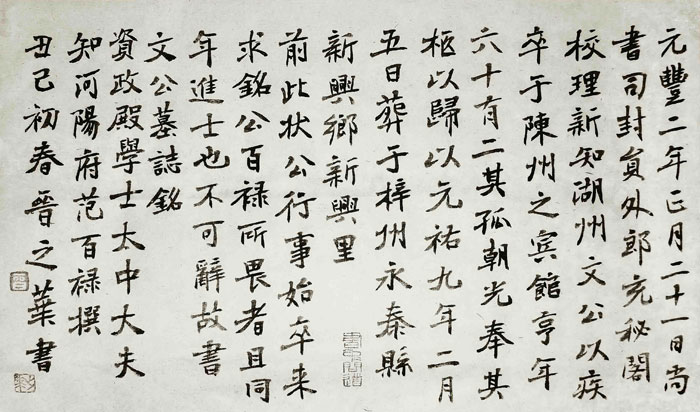 元豐二年正月二十一日尚
書司封員外郎充秘閣
校理新知湖州文公以疾
卒于陳州之宾館亨年
六十有二其孤朝光奉其
柩以歸以元祐九年二月
五日葬于梓州永泰縣
新興鄉新興里
前此状公行事始卒来
求銘公百禄所畏者且同
年進士也不可辭故書
文公墓誌銘
資政殿學士太中大夫
知河陽府范百禄撰
丑己初春晉之葉書